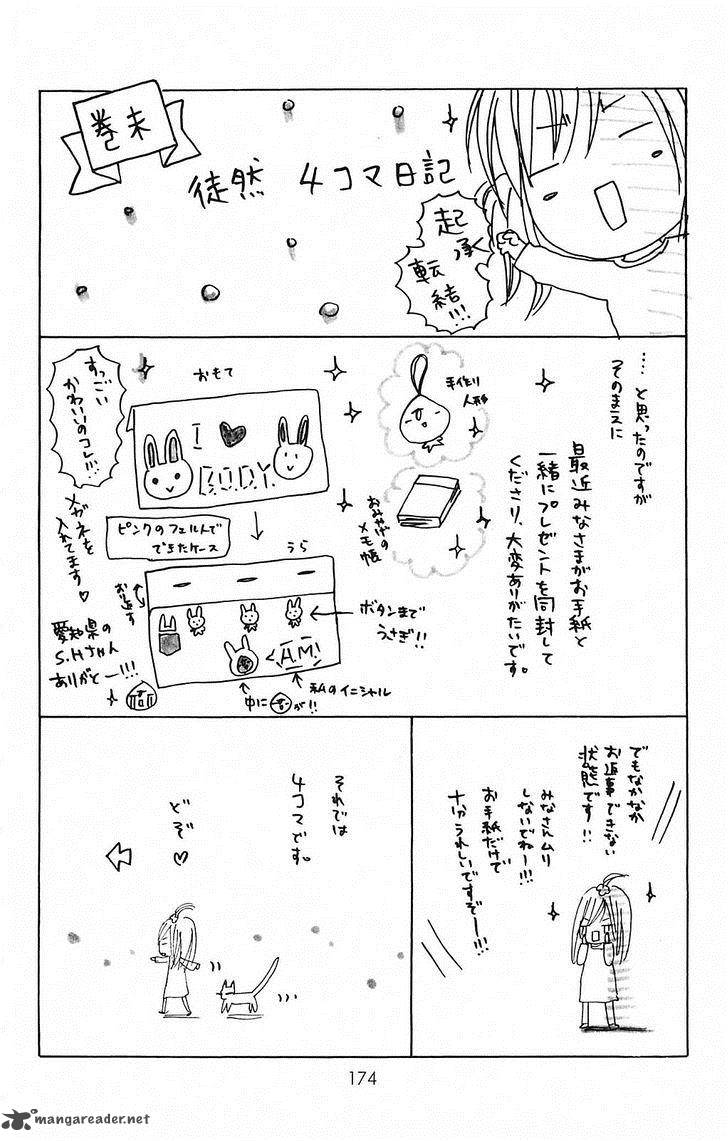 巻末
徒然 4コマ日記
起
承
転
結!!!
……と思ったのですが
そのまえに
最近みなさまがお手紙と
一緒にプレゼントを同封して
くださり、大変ありがたいです。
手作り
人形
おみやげの
メモ帳
おもて
I ♥
B.O.D.Y.
すっごい
かわいいのコレ!!!
ピンクのフェルトで
できたケース
メガネを
入れてます♡
うら
お返す
ボタンまで
うさぎ!!
A.M!
私のイニシャル
中に
が!!
愛知県の
S.Hちゃん
ありがとー!!!
でもなかなか
お返事できない
状態です!!
みなさんムリ
しないでねー!!!
お手紙だけで
十分うれしいですぞー!!!
それでは
4コマです。
どぞ♡
174
mangareader.net